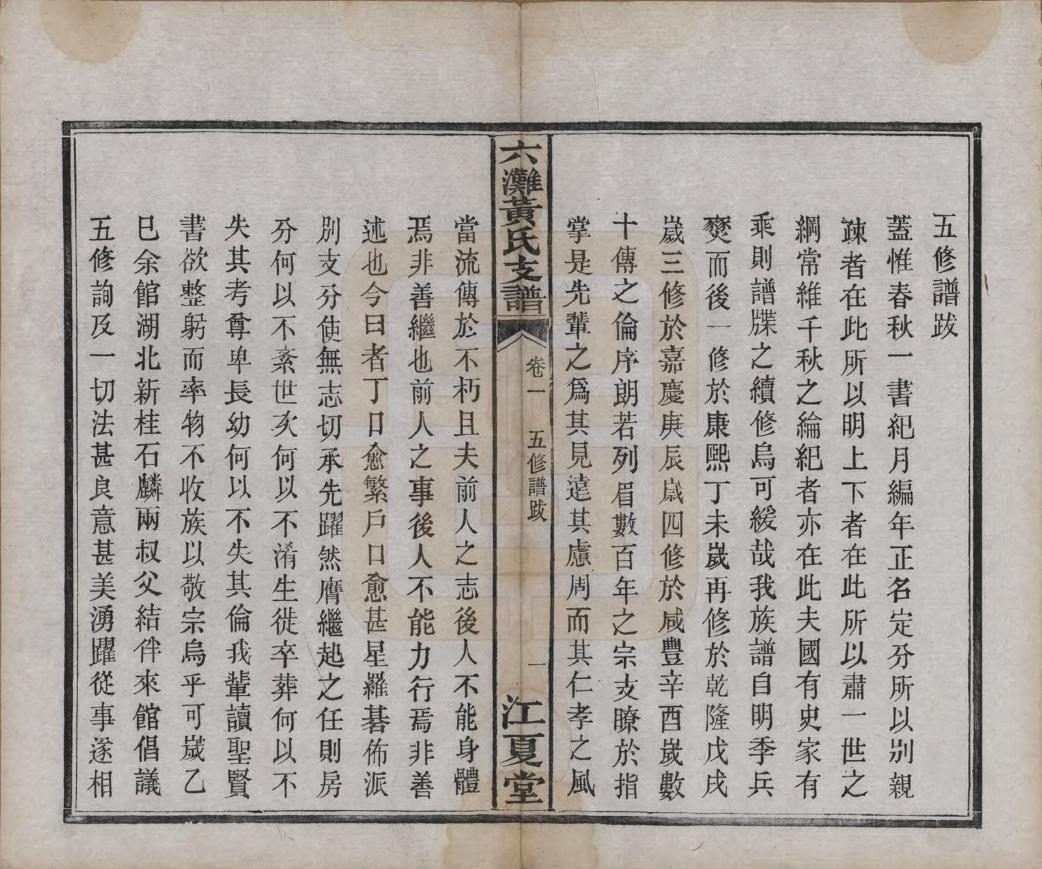 五修譜跋
蓋惟春秋一書紀月編年正名定分所以別親
疎者在此所以明上下者在此所以肅一世之
綱常維千秋之綸紀者亦在此夫國有史家有
乘則譜牒之續修烏可緩哉我族譜自明季兵
燹而後一修於康熙丁未嵗再修於乾隆戊戌
嵗三修於嘉慶庚辰嵗四修於咸豐辛酉嵗數
十傳之倫序朗若列眉數百年之宗支瞭於指
掌是先輩之爲其見遠其慮周而其仁孝之風
六灘黃氏支譜
卷一
五修譜跋
一
江夏堂
當流傳於不朽且夫前人之志後人不能身體
焉非善繼也前人之事後人不能力行焉非善
述也今日者丁口愈繁戶口愈甚星羅碁佈派
別支分使無志切承先躍然膺繼起之任則房
分何以不紊世次何以不淆生徙卒葬何以不
失其考尊卑長幼何以不失其倫我輩讀聖賢
書欲整躬而率物不收族以敬宗烏乎可嵗乙
巳余館湖北新桂石麟兩叔父結伴來館倡議
五修詢及一切法甚良意甚美湧躍從事遂相